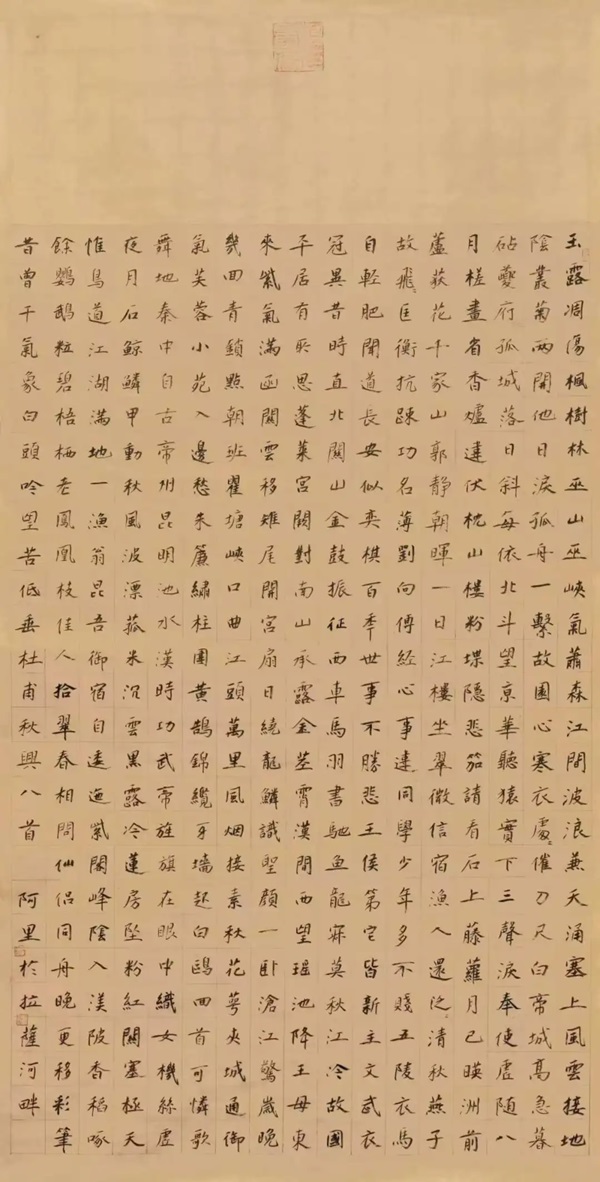 玉露凋傷楓樹林巫山巫峽氣蕭森江間波浪兼天涌塞上風雲接地
陰叢菊兩開他日淚孤舟一繫故園心寒衣處〻催刀尺白帝城高急暮
砧夔府孤城落日斜每依北斗望京華聽猿實下三聲淚奉使虛隨八
月槎畫省香爐違伏枕山樓粉堞隱悲笳請看石上藤蘿月已映洲前
蘆荻花千家山郭靜朝暉一日江樓坐翠微信宿漁人還泛〻清秋燕子
故飛〻匡衡抗疏功名薄劉向傳經心事違同學少年多不賤五陵衣馬
自輕肥聞道長安似奕棋百年世事不勝悲王侯第宅皆新主文武衣
冠異昔時直北關山金鼓振征西車馬羽書馳魚龍寂寞秋江冷故國
平居有所思蓬萊宮闕對南山承露金莖霄漢間西望瑤池降王母東
來紫氣滿函關雲移雉尾開宮扇日繞龍鱗識聖顏一臥滄江驚歲晚
幾回青鎖點朝班瞿塘峽口曲江頭萬里風烟接素秋花萼夾城通御
氣芙蓉小苑入邊愁朱簾繡柱圍黃鵠錦纜牙墻起白鷗回首可憐歌
舞地秦中自古帝州昆明池水漢時功武帝旌旗在眼中織女機絲虛
夜月石鯨鱗甲動秋風波漂菰米沉雲黑露冷蓮房墜粉紅關塞極天
惟鳥道江湖滿地一漁翁昆吾御宿自逶迤紫閣峰陰入渼陂香稻啄
餘鸚鵡粒碧梧栖老鳳凰枝佳人拾翠春相問仙侶同舟晚更移彩筆
昔曾干氣象白頭吟望苦低垂杜甫秋興八首 阿里於拉薩河畔